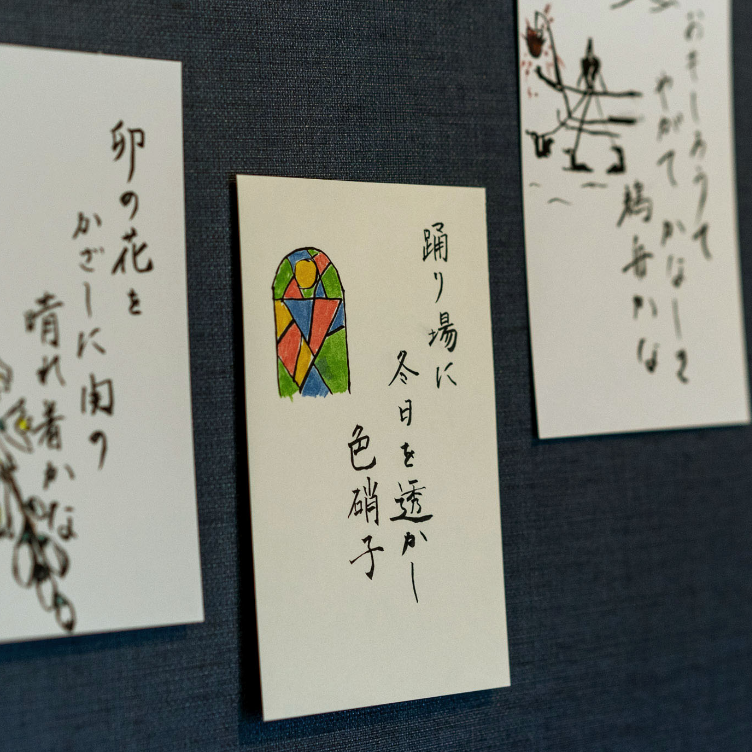 おもしろうて
やがてかなしき
鵜舟かな
踊り場に
冬日を透かし
色硝子
卯の花を
かざしに関の
晴れ着かな